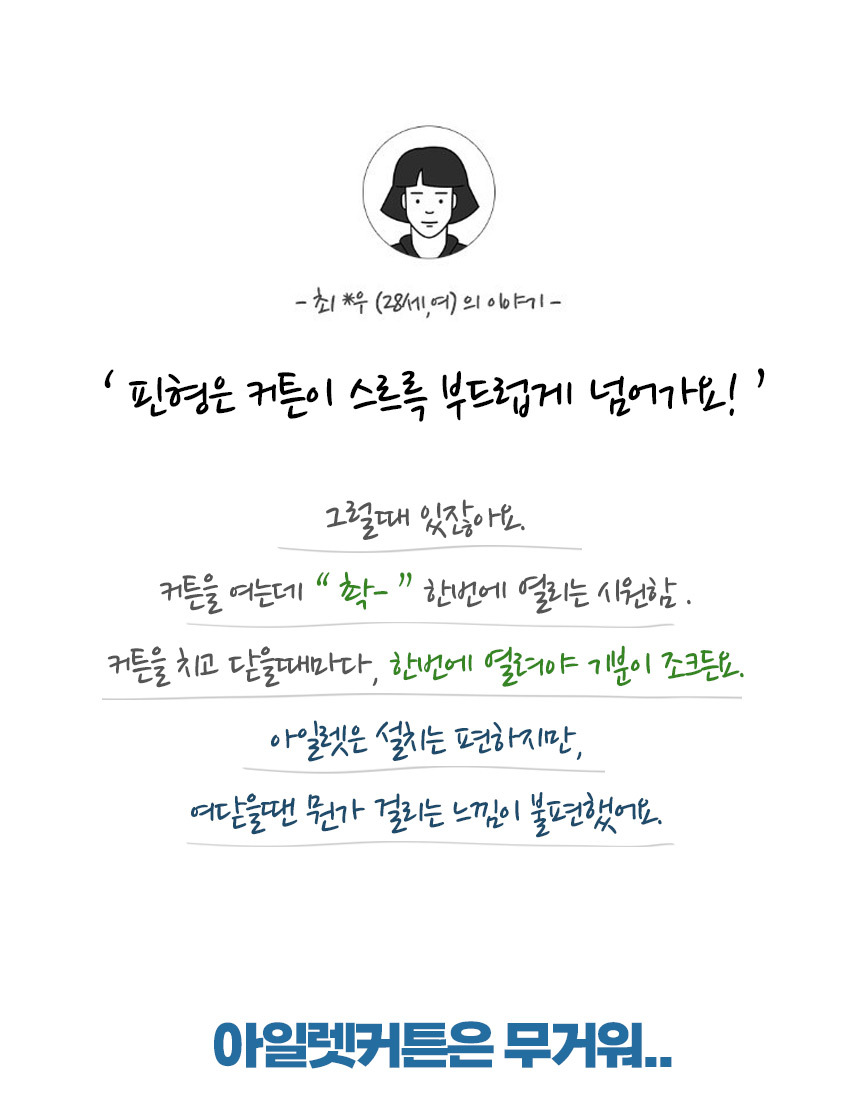 - 최*우 (28세,여)의 이야기 -
‘ 핀형은 커튼이 스르륵 부드럽게 넘어가요! ’
그럴때 있잖아요.
커튼을 여는데 “ 촥- ” 한번에 열리는 시원함 .
커튼을 치고 닫을때마다, 한번에 열려야 기분이 조크든요.
아일렛은 설치는 편하지만,
여닫을땐 뭔가 걸리는 느낌이 불편했어요.
아일렛커튼은 무거워..